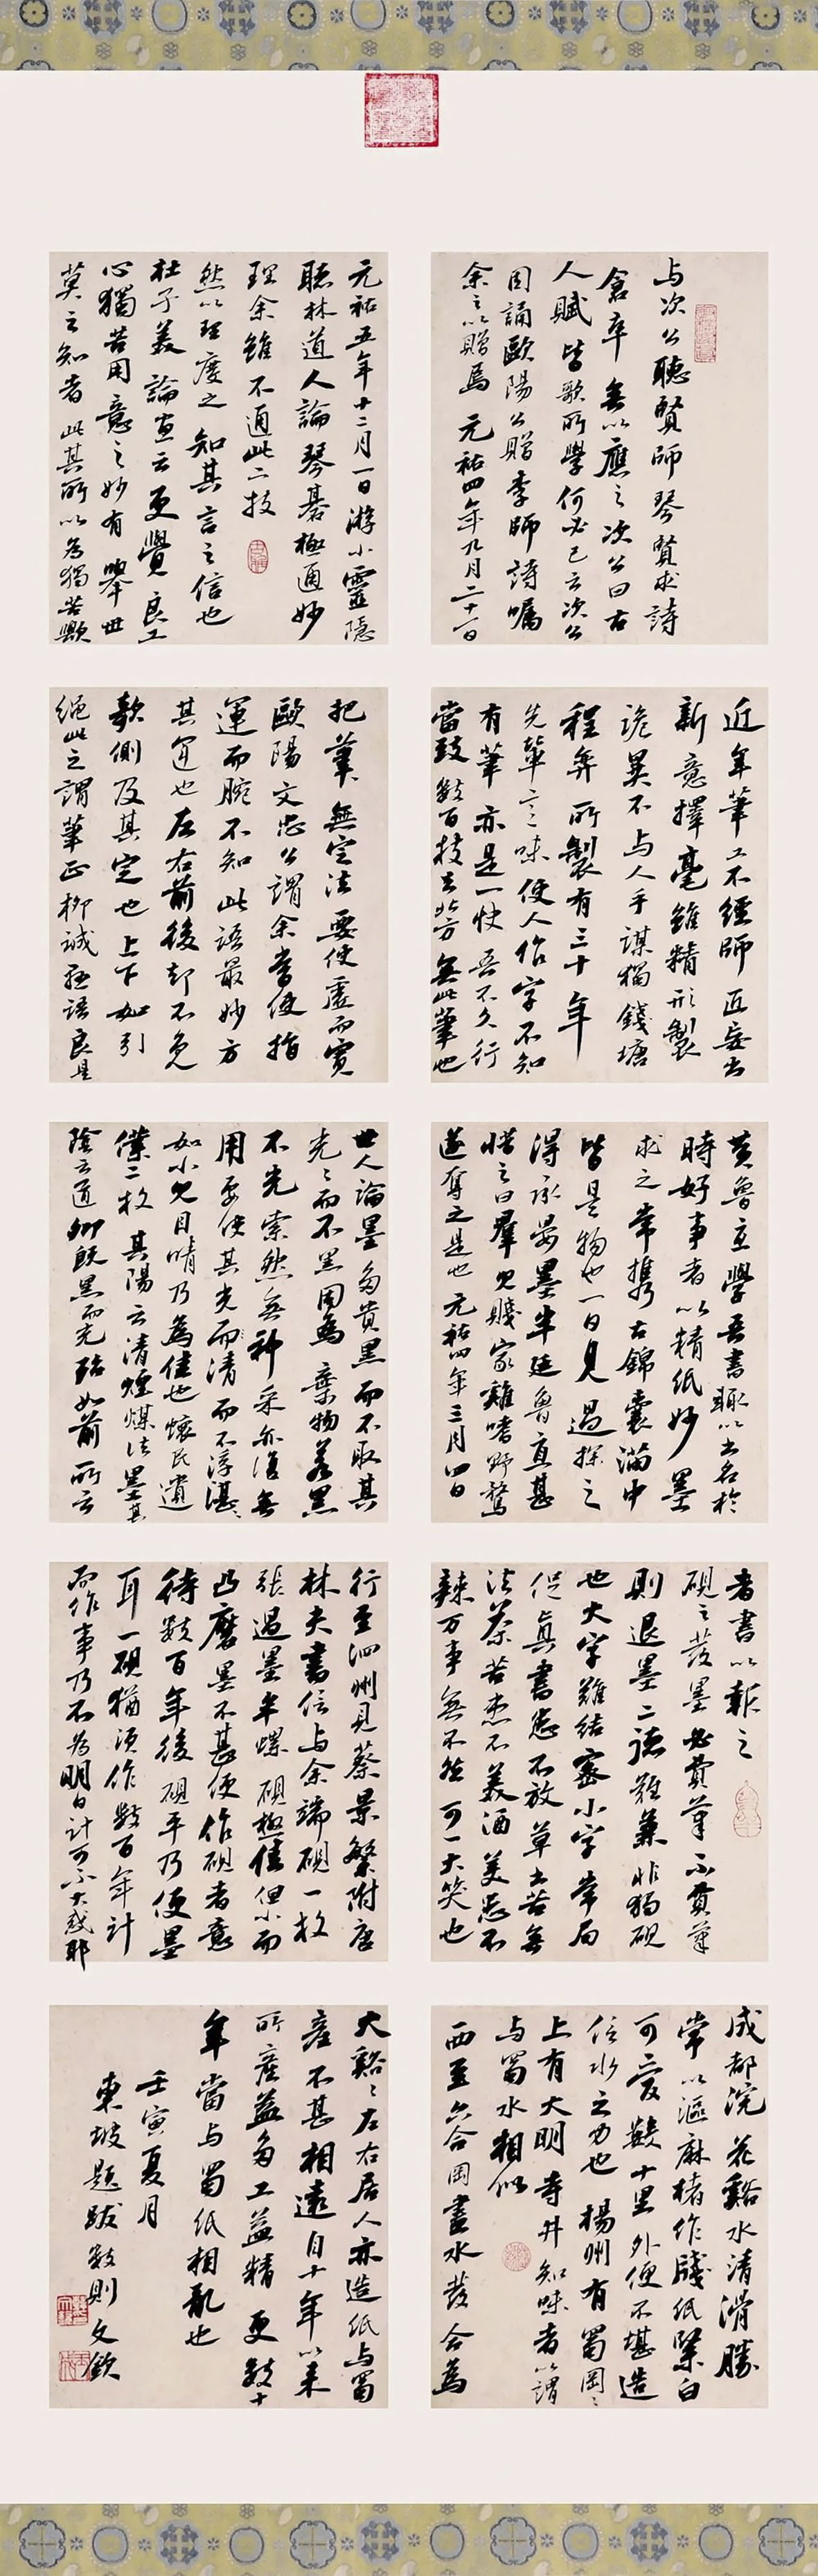 与次公聽賢師琴賢求詩
倉卒無以應之次公曰古
人賦皆歌所學何必己云次公
因誦歐陽公贈李師詩囑
余之以贈焉元祐四年九月二十一日
元祐五年十二月一日游小靈隱
聽林道人論琴碁極通妙
理余雖不通此二技
然以理度之知其言之信也
杜子美論畫云更覺良工
心獨苦用意之妙有舉世
莫之知者此其所以為獨苦歟
近年筆工不經師匠妄出
新意擇毫雖精形製
詭異不与人手謀獨錢塘
程奕所製有三十年
先輩意味使人作字不知
有筆亦是一快吾不久行
當致數百枝去北方無此筆也
把筆無定法要使虛而寬
歐陽文忠公謂余當使指
運而腕不知此語最妙方
其運也左右前後却不免
欹側及其定也上下如引
繩此之謂筆正柳誠懸語良是
黃魯直學吾書輒以書名於
時好事者以精紙妙墨
求之常攜古錦囊滿中
皆是物也一日見過探之
得承晏墨半廷魯直甚
惜之曰群兒賤家雞嗜野鶩
遂奪之是也元祐四年三月四日
世人論墨多貴黑而不取其
光光而不黑固為棄物若黑
不光索然無神采亦復無
用要使其光而清而不浮湛湛
如小兒目睛乃為佳也懷民遺
僕二枚其陽云清煙煤法墨其
陰云道卿既黑而光殆如前所云
者書以報之
硯之發墨必費筆不費筆
則退墨二德難兼非獨硯
也大字難結密小字常局
促真書患不放草書苦無
法茶苦患不美酒美患不
辣万事無不然可一大笑也
行至泗州見蔡景繁附唐
林夫書信与余端硯一枚
張遇墨半螺硯極佳但小而
凸磨墨不甚便作硯者意
待數百年後硯平乃便墨
耳一硯猶須作數百年計
而作事乃不為明日計可不大惑耶
成都浣花谿水清滑勝
常以漚麻楮作牋紙緊白
可愛數十里外便不堪造
信水之力也揚州有蜀岡岡
上有大明寺井知味者以謂
与蜀水相似
西至六合岡盡水發合為
大谿谿左右居人亦造紙与蜀
產不甚相遠自十年以來
所產益多工益精更數十
年當与蜀紙相亂也
壬寅夏月
東坡題跋數則文欽